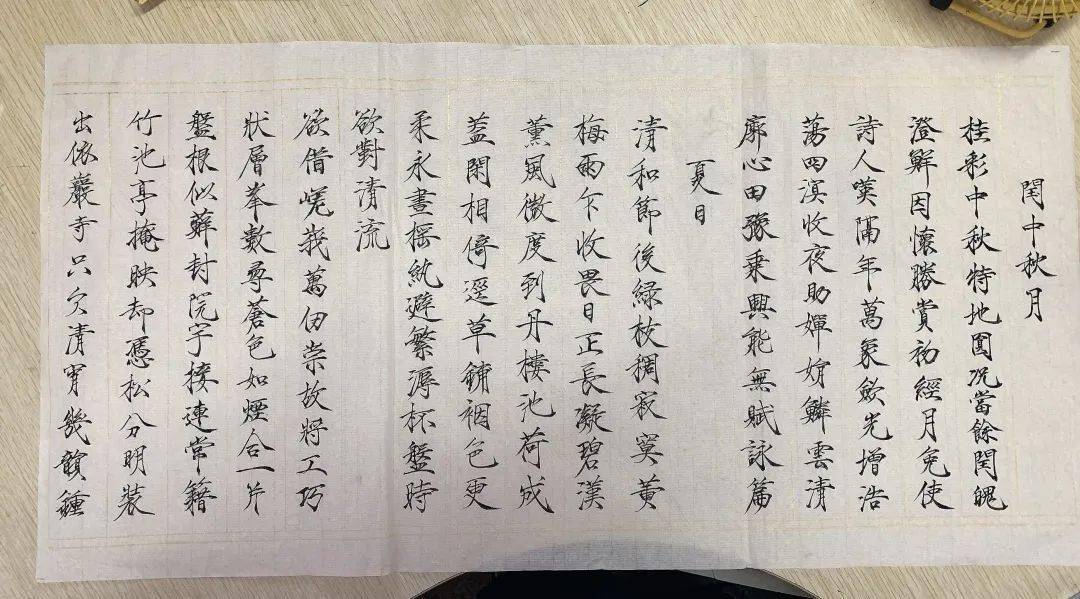 閏中秋月
桂彩中秋特地圓況當餘閏魄
澄鮮因懷勝賞初經月免使
詩人嘆隔年萬象歛光增浩
蕩四溟收夜助嬋娟鱗雲清
廓心田豫乘興能無賦詠篇
夏日
清和節後綠枝稠寂寞黄
梅雨乍收畏日正長凝碧漢
薰風微度到丹樓池荷成
蓋閑相倚逕草鋪裀色更
柔永晝搖紈避繁溽杯盤時
欲對清流
欲借嵯峩萬仞崇故將工巧
狀層峯數尋蒼色如煙合一片
盤根似蘚封院宇接連常籍
竹池亭掩映却憑松分明裝
出依巖寺只欠清宵幾韻鍾